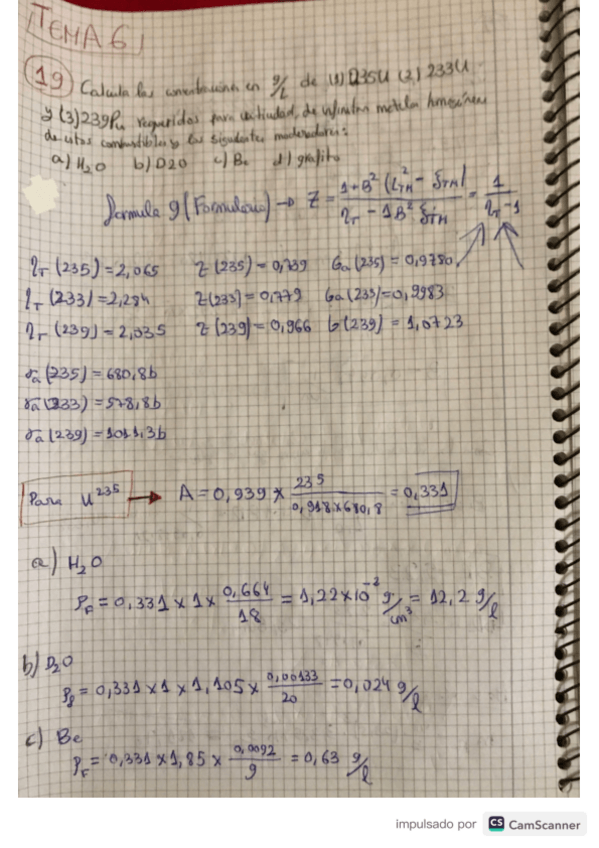 TEMA 6
19) Calcula las concentraciones en g/L de (1) 235U (2) 233U
y (3) 239Pu requeridos para criticidad, de infinitas mezclas homogéneas
de estos combustibles y los siguientes moderadores:
a) H2O b) D2O c) Be d) grafito
formula 9 (Formulario) → Z = 1+B²(L²TM - ζTM) / ηT - 1B² ζTM = 1 / ηT - 1
ηT (235) = 2,065 Z (235) = 0,939 Ga (235) = 0,9780
ηT (233) = 2,284 Z (233) = 0,779 Ga (233) = 0,9983
ηT (239) = 2,035 Z (239) = 0,966 G (239) = 1,0723
σa (235) = 680,8b
σa (233) = 578,8b
σa (239) = 1011,3b
Para U²³⁵ → A = 0,939 × 235 / 0,918×680,8 = 0,331
a) H2O
ρF = 0,331 × 1 × 0,664 / 18 = 1,22×10⁻² g/cm³ = 12,2 g/l
b) D2O
ρf = 0,331 × 1 × 1,105 × 0,00133 / 20 = 0,024 g/l
c) Be
ρF = 0,331 × 1,85 × 0,0092 / 9 = 0,63 g/l
impulsado por CS CamScanner